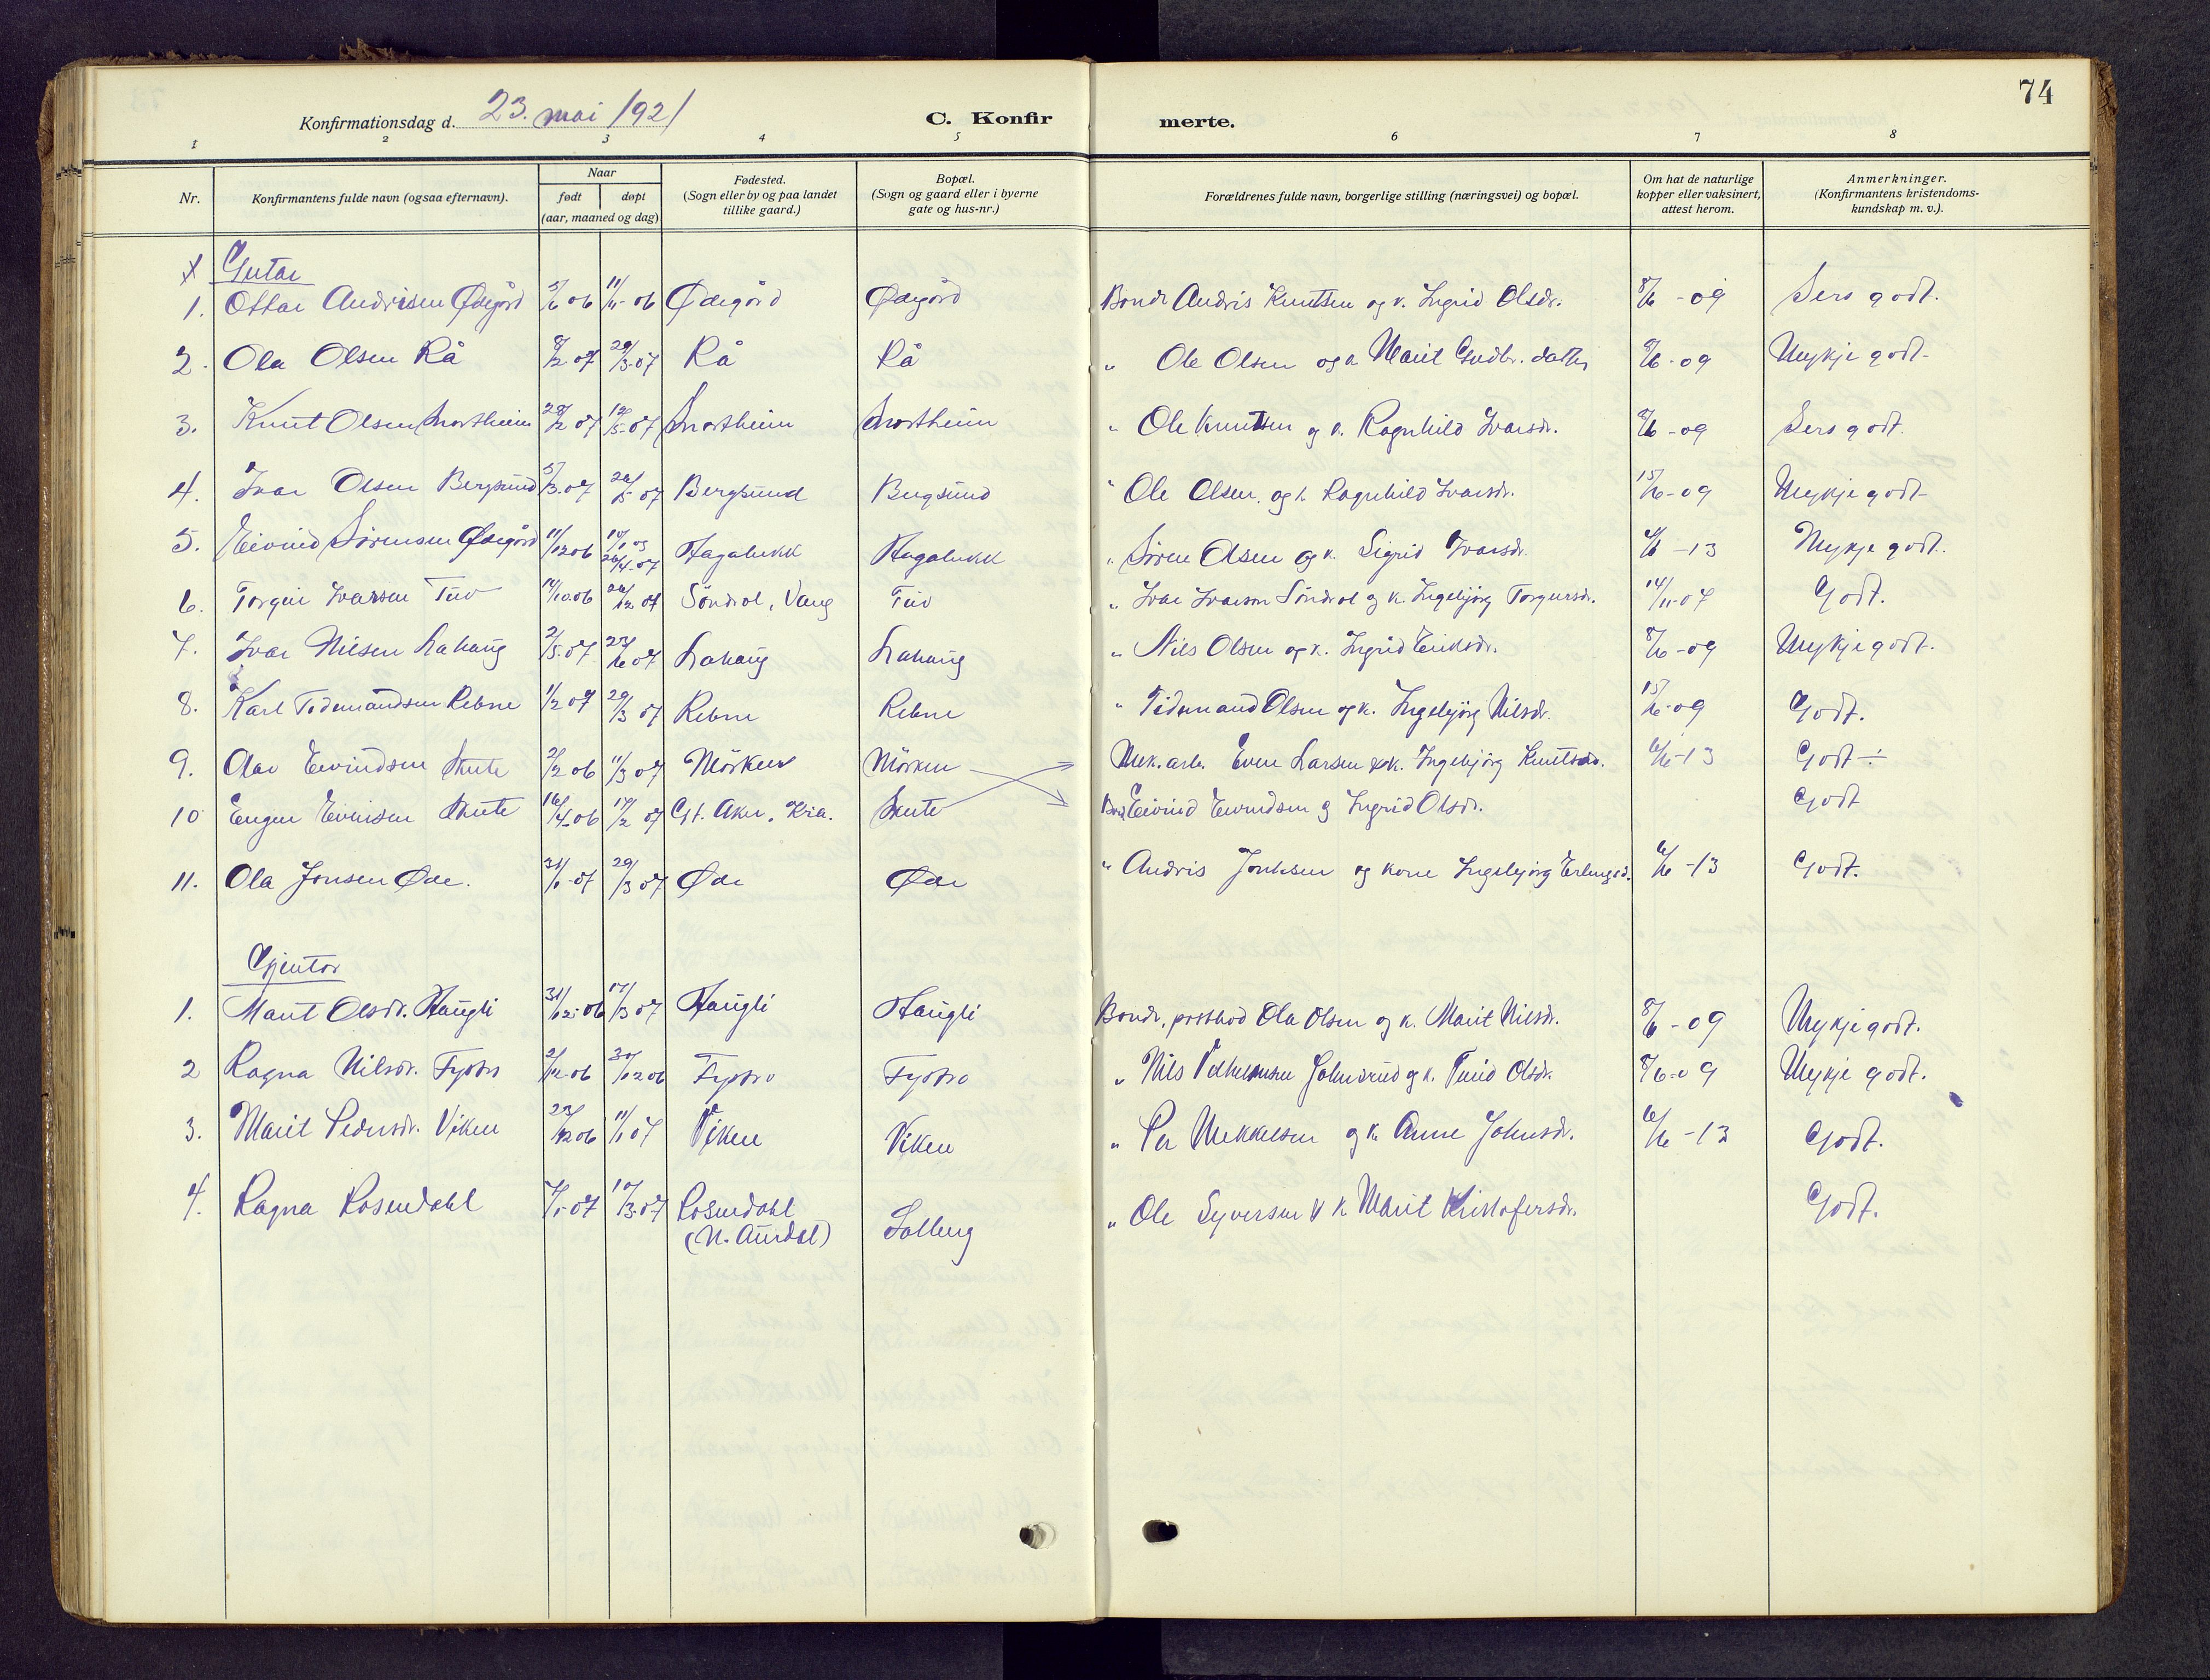 74
Konfirmationsdag d. 23. mai 1921
C. Konfir merte.
1 2 3 4 5 6 7 8
Nr.
Konfirmantens fulde navn (ogsaa efternavn).
Naar
født døpt
(aar, maaned og dag)
Fødested.
(Sogn eller by og paa landet
tillike gaard.)
Bopæl.
(Sogn og gaard eller i byerne
gate og hus-nr.)
Forældrenes fulde navn, borgerlige stilling (næringsvei) og bopæl.
Om hat de naturlige
kopper eller vaksinert,
attest herom.
Anmerkninger.
(Konfirmantens kristendoms-
kundskap m. v.).
Gutar
1. Ottar Andrisen Ødegård 5/6 06 11/11-06 Ødegård Ødegård Bonde Andris Knutsen og k. Ingrid Olsdr. 8/6 - 09 Sers godt.
2. Ola Olsen Rå 8/2 07 29/3-07 Rå Rå " Ole Olsen og k Marit Gudbr. datter 8/6 - 09 Mykje godt
3. Knut Olsen 28/2 07 12/5-07 " Ole Knutsen og k. Ragnhild Ivarsdr. 8/6 - 09 Sers godt.
4. Ivar Olsen Bergsund 5/3-07 26/5 07 Bergsund Bergsund " Ole Olsen. og k. Ragnhild Ivarsdr. 15/6-09 Mykje godt
5. Eivind Sørensen Ødegård 11/12 06 26/4-07 Hagalykk Hagalykk " Søren Olsen og k. Sigrid Ivarsdr. 6/6 -13 Mykje godt.
6. Torgeir Ivarsen Tuv 14/10-06 26/12 07 Søndrol, Vang Tuv " Ivar Ivarson Søndrol og k. Ingebjørg Torgersdr. 14/11-07 Godt.
7. Ivar Nilsen Lahaug 2/5-07 23/6 07 Lahaug Lahaug " Nils Olsen og k. Ingrid Eiriksdr. 8/6 -09 Mykje godt.
8. Karl Tidemandsen Rebne 1/2 07 29/3 07 Rebne Rebne " Tidemand Olsen og k. Ingebjørg Nilsdr. 15/6-09 Godt.
9. Olav Eivindsen Skute 2/2 06 11/3 07 Mörken Mörken Mek. arb. Even Larsen og k. Ingebjørg Knutsdr. 6/6-13 Godt ÷
10 Eugen Evensen Skute 16/4-06 17/2 07 Gt. Aker, Kria. Skute Eivind Eivindsen og Ingrid Olsdr. Godt
11. Ola Jonsen Øde. 31/1-07 29/3 07 Øde Øde " Andris Jonhsen og kone Ingebjørg Erlingsd. 6/6 -13 Godt.
Gjentor
1. Marit Olsdr. Haugli 31/12-06 17/3 07 Haugli Haugli Bonde, postbod Ola Olsen og k. Marit Nilsdr. 8/6 - 09 Mykje godt.
2 Ragna Nilsdr. 2/12-06 30/12 06 " Nils og k. Turid Olsdr. 8/6-09 Mykje godt.
3. Marit Pedersdr. Viken 23/12 06 11/1 07 Viken Viken " Per Mekkelsen og k. Anne Johnsdr. 6/6 -13 Godt.
4. Ragna Rosendahl 7/1-07 10/3-07 Rosendahl
(N. Aurdal) Solberg " Ole Syversen k Marit Kristofersdr. Godt.